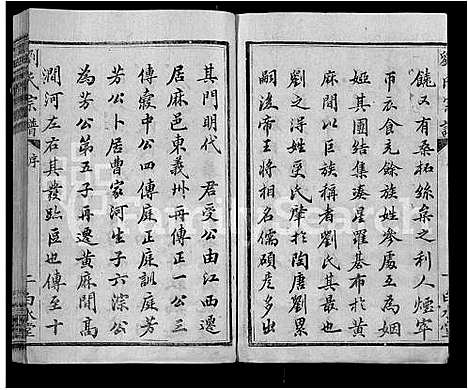 饒又有桑柘絲枲之利人煙宰
币衣食充餘族姓參處互為姻
婭其團結湊星羅碁布於黄
麻間以巨族稱者劉氏其最也
劉之得姓更氏肇於陶唐劉累
嗣後帝王將相名儒碩彥多出
其門明代 君受公由江西遷
居麻邑東義州再傳正一公三
傳發中公四傳庭正庭訓庭芳
芳公卜居曹家河生子六淙公
為芳公第五子再遷黄麻閒高
澗河左右其發跡區也傳至十
劉氏宗譜
序
二
白水堂
劉氏宗譜
白水堂
FamilySearch